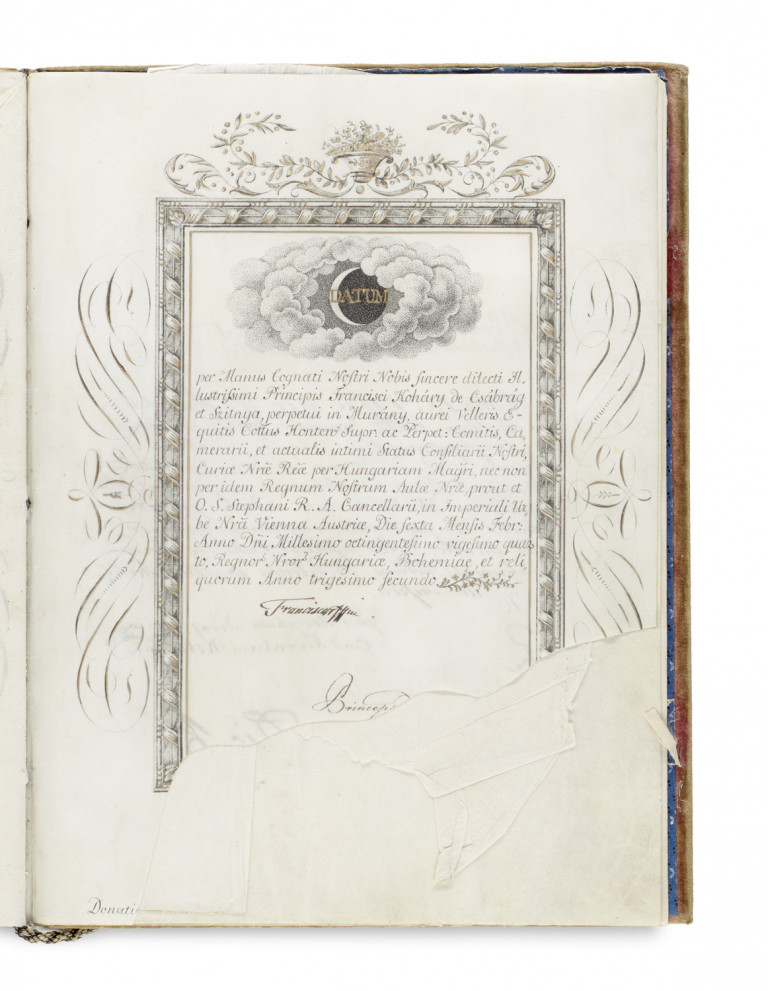 DATUM
per Manus Cognati Noſtri Nobis ſincere dilecti Il-
luſtriſſimi Principis Franciſci Koháry de Csábrág
et Szitnya, perpetui in Murány, aurei Velleris E-
quitis Cottus Honten: Supr: ac Perpet: Comitis, Ca,
merarii, et actualis intimi Status Conſiliarii Noſtri,
Curiæ Nrae Rae per Hungariam Magri, nec non
per idem Regnum Noſtrum Aulæ Nrae, prout et
O. S. Stephani R. A. Cancellarii, in Imperiali Ur,
be Nra Vienna Austriæ, Die ſexta Menſis Febr:
Anno Dñi Milleſimo octingenteſimo vigeſimo quar
to, Regnor: Nror: Hungariæ, Bohemiae, et reli,
quorum Anno trigeſimo ſecundo
Franciscus
Princeps
Donati